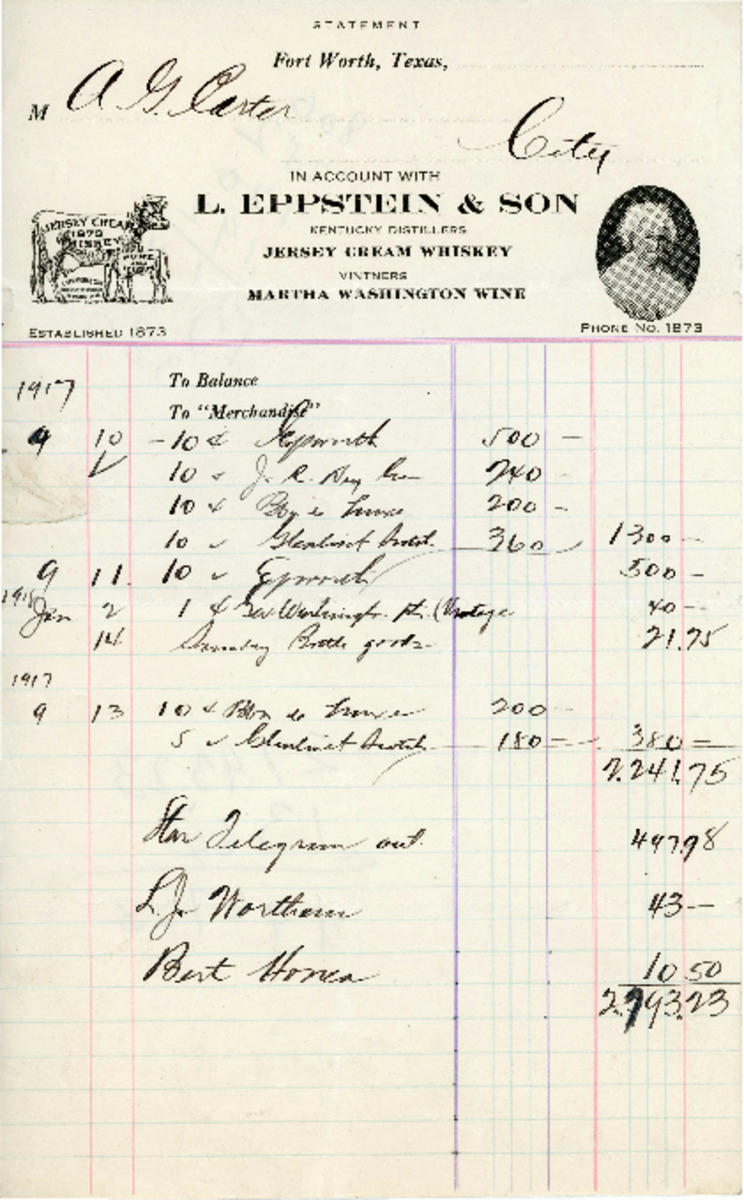 STATEMENT
Fort Worth, Texas,
M A. G. Carter
City
IN ACCOUNT WITH
L. EPPSTEIN & SON
KENTUCKY DISTILLERS
JERSEY CREAM WHISKEY
VINTNERS
MARTHA WASHINGTON WINE
JERSEY CREAM
1873
WHISKEY
PURE
ESTABLISHED 1873
PHONE NO. 1873
1917
To Balance
To "Merchandise"
9 10 - 10 Epworth 500 -
10 J. R. 240 -
10 de Luxe 200 -
10 Glenlivet Scotch 360 1300 -
9 11. 10 Epworth 500 -
1918
Jan 2 1 Geo Washington (Vintage 40 -
14 Sunday Bottle goods 21.75
1917
9 13 10 de Luxe 200 -
5 Glenlivet Scotch 180 - 380 -
2.241.75
Star Telegram act. 497.98
L. J. Wortham 43 -
Bert Honea 10 50
2.793.23